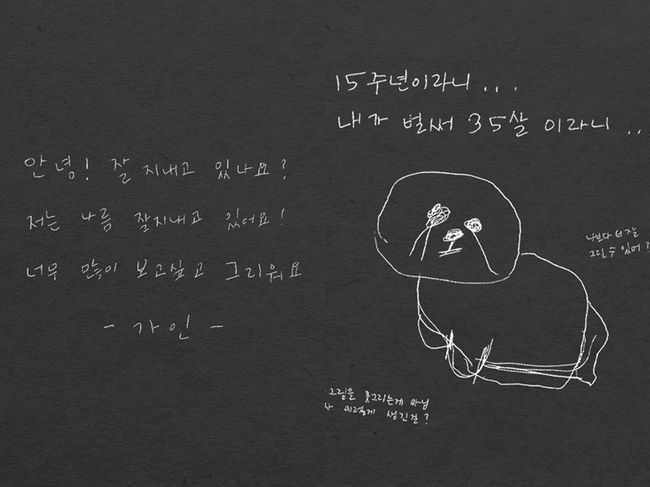 안녕! 잘 지내고 있나요?
저는 나름 잘지내고 있어요!
너무 많이 보고싶고 그리워요
- 가인 -
15주년이라니...
내가 벌써 35살 이라니..
나보다 더 잘
그릴 수 있어?
그림을 못그리는게 아님
이렇게 생긴걸?